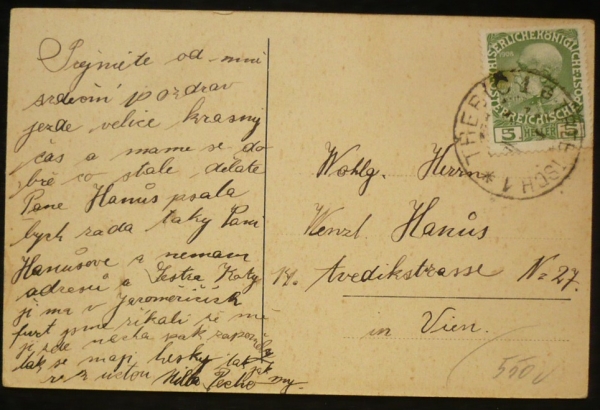 Prijměte od mni
srdečni pozdrav
jezde velice krasny
čas a mame se do
bře co stale dělate
Pane Hanuš psala
bych rada taky Pani
Hanušove a nemam
adresu a Sestra Katy
ji ma v Jaroměřičich
furt jsme řikali že mě
ji zde necha pak zapoměla
tak se maji hesky tak jak my.
v z uctou
KAISERLICHE KÖNIGLICHE
ÖSTERREICHISCHE
5 HELLER 5
TŘEBIČ 1 TREBITSCH 1
Wohlg. Herrn
Wenzl Hanuš
14. Avedikstrasse No 27.
in Wien.
550